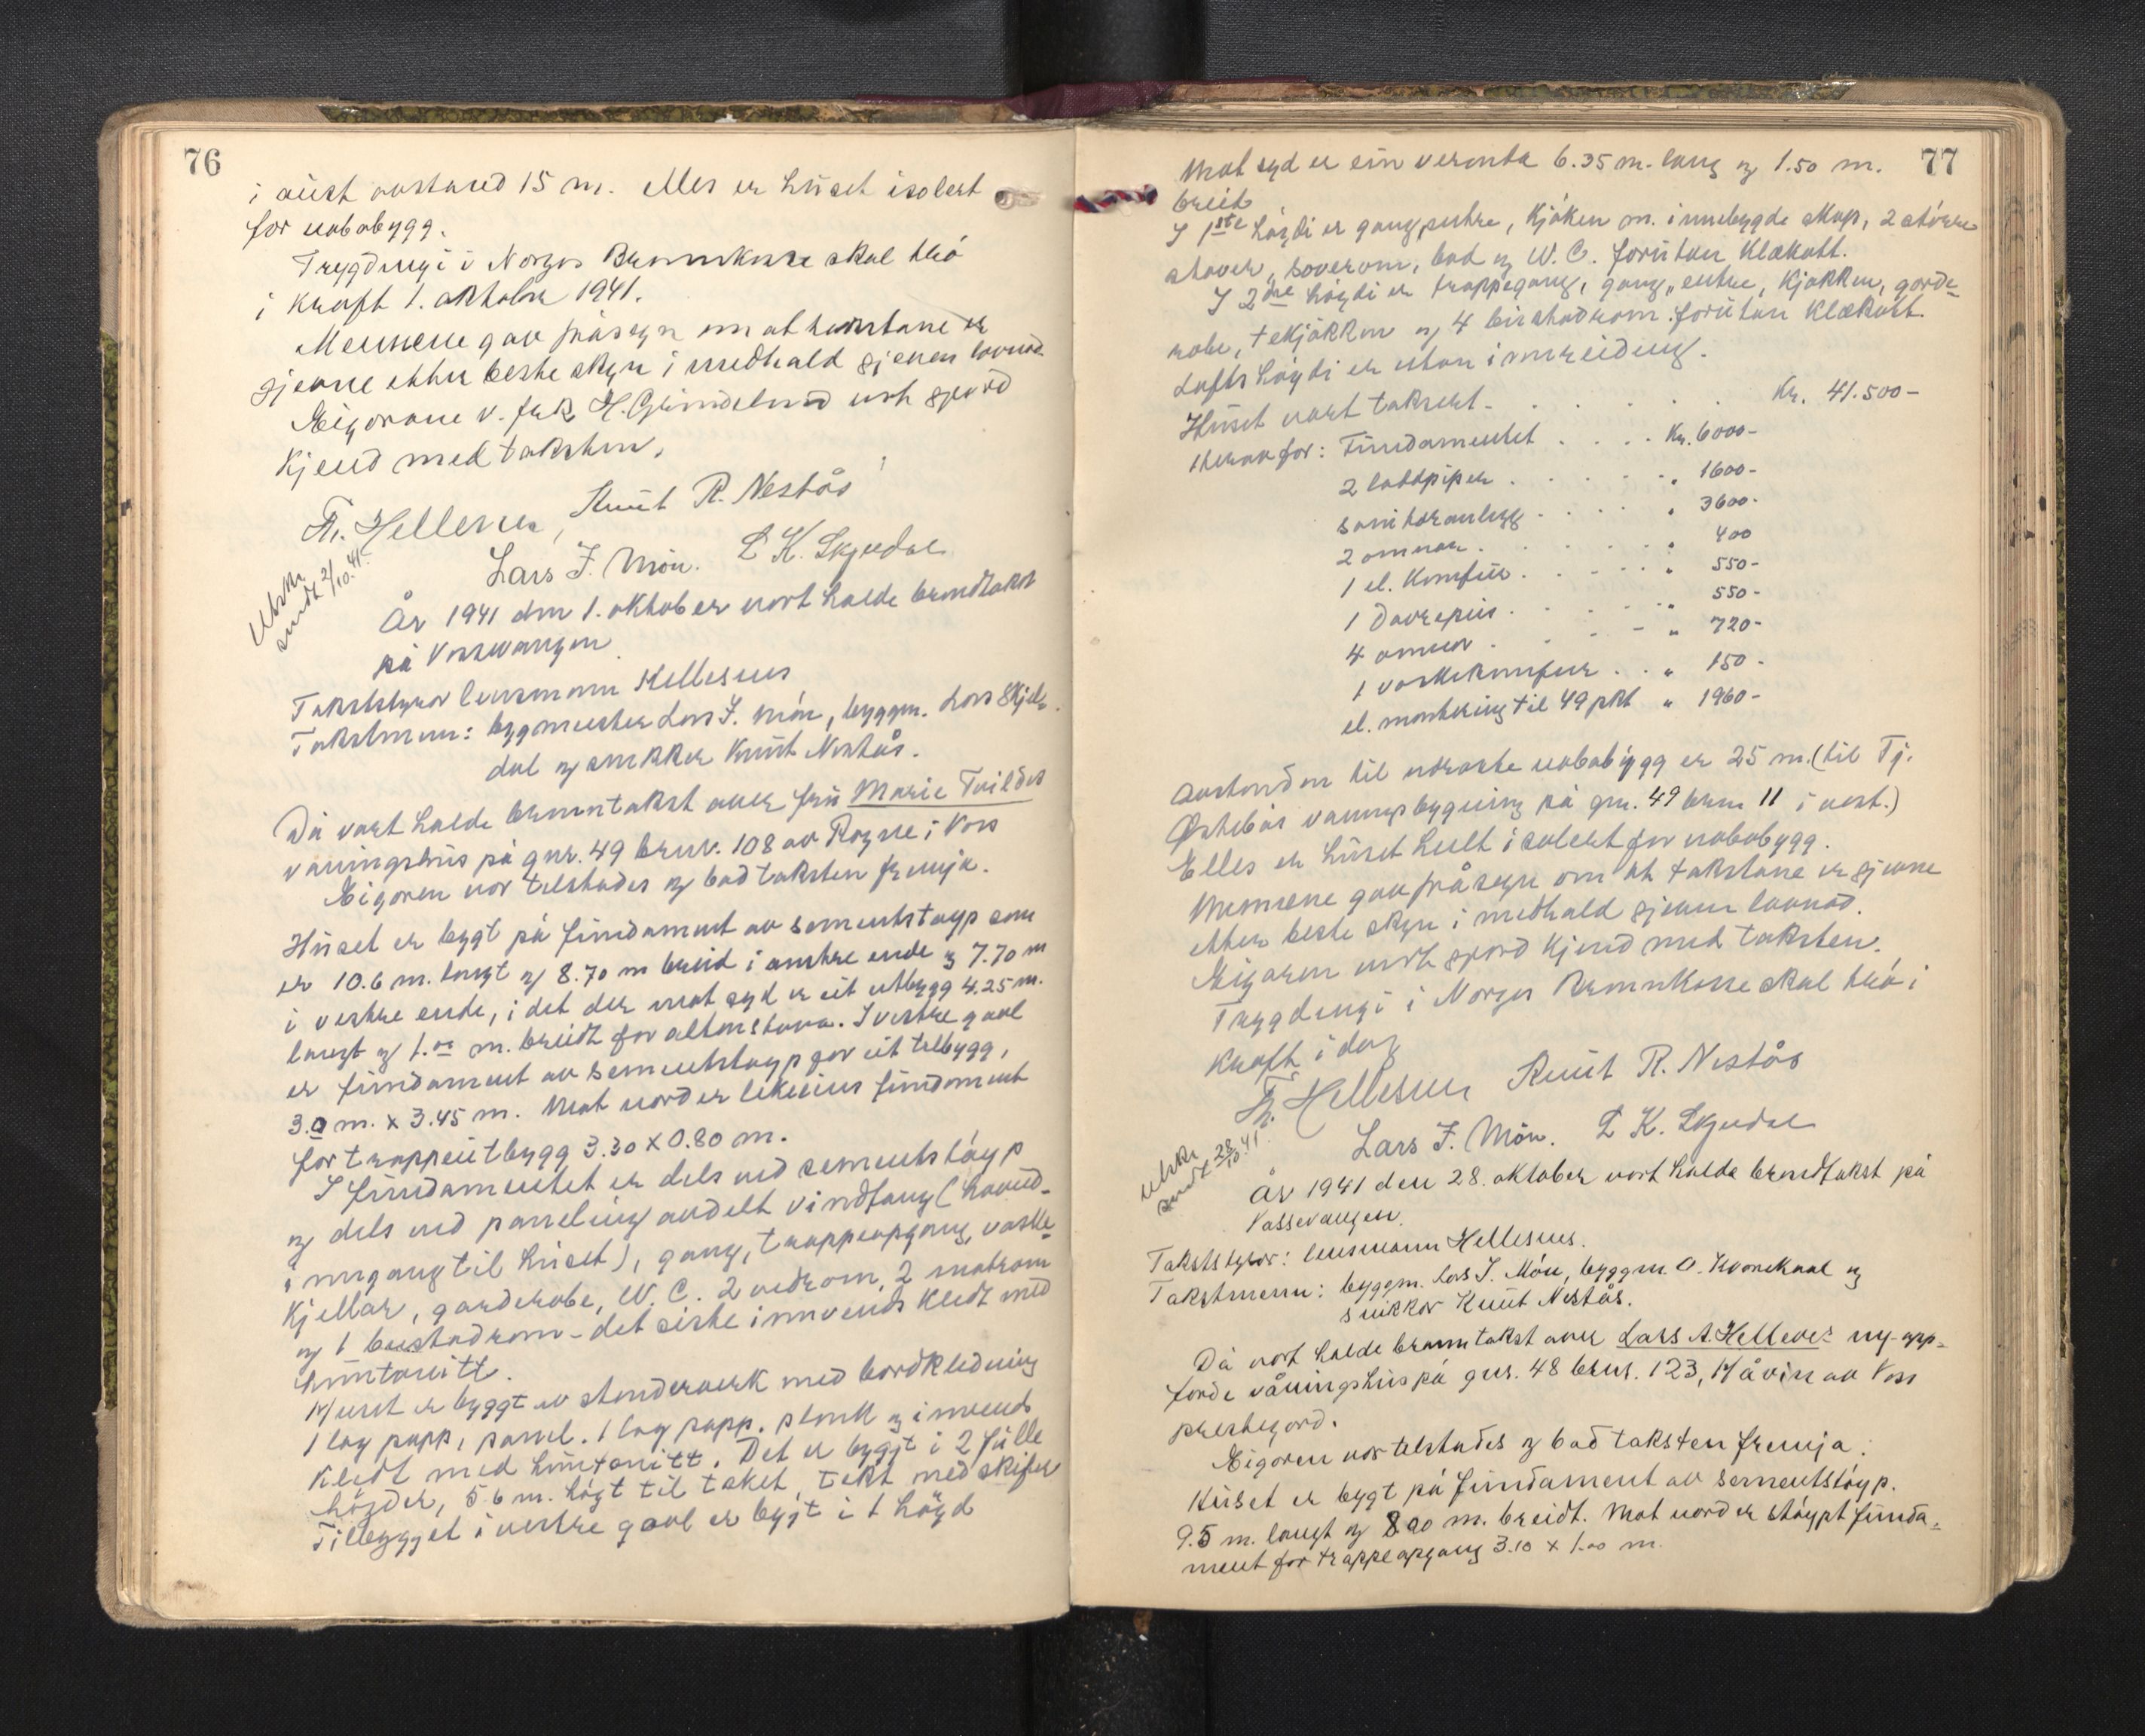 76
i aust avstand 15 m. Elles er huset isolert
for nabobygg.
Trygdingi i Norges Brannkasse skal stå
i kraft 1. oktober 1941.
Mennene gav fråsegn om at takstane er
gjevne etter beste skyn i medhald gjeven lovnad.
Eigarane v. frk H. Grindelund vart gjord
kjend med taksten.
Fr. Hellesnes, Knut R. Nestås
Lars J. Møn. L K. Skjeldal
Utskr.
sendt 2/10.41.
År 1941 den 1. oktober vart halde brandtakst
på Vossevangen
Takststyrar lensmann Hellesnes
Takstmenn: bygmeister Lars J. Møn, byggm. Lars Skjel-
dal og snikkar Knut Nestås.
Då vart halde branntakst over fru Marie Tvildes
våningshus på gnr. 49 brnr. 108 av Rogne i Voss
Eigaren var tilstades og bad taksten fremja.
Huset er bygt på fundament av sementstøyp som
er 10.6 m. langt og 8.70 m breid i austre ende og 7.70 m
i vestre ende, i det der mot syd er eit utbygg 4.25 m.
langt og 1.00 m. breidt for altanstova. I vestre gavl
er fundament av sementstøyp for eit tilbygg,
3.0 m. x 3.45 m. Mot nord er likeeins fundament
for trappeutbygg 3.30 x 0.80 m.
I fundamentet er dels ved sementstøyp
og dels ved panneling avdelt vindfang (hovud-
inngang til huset), gang, trappeopgang, vaske-
kjellar, garderobe, W. C. 2 vedrom, 2 matrom
og 1 bustadrom - det siste innvends kledt med
huntonitt.
Huset er byggt av stenderverk med bordkledning
1 lag papp, pannel. 1 lag papp. plank og innvends
kledt med huntonitt. Det er byggt i 2 fulle
høgder, 5.6 m. høgt til taket, tekt med skifer
Tilbygget i vestre gavl er bygt i 1 høgd
77
Mot syd er ein veranda 6.35 m. lang og 1.50 m.
breid
I 1ste høgdi er gang, entre, kjøken m. innebygde skap, 2 større
stover, soverom, bad og W. C. forutan klækott.
I 2dre høgdi er trappegang, gang, entre, kjøkken, garde-
robe, tekjøkken og 4 bustadrom. forutan klækott.
Loftshøgdi er utan innreiding.
Huset vart taksert - . . . . . Kr. 41.500-
Herav for: Fundamentet . . . . Kr. 6000-
2 laddpiper . . . . . " 1600-
sanitæranlegg . . . . " 3600-
2 omnar . . . . . . " 400
1 el. komfur . . . . . " 550-
1 Davrepeis . . . . . " 550-
4 omnar . . . - " 720-
1 vaskekomfur . . " 150-
el. montering til 49 pkt " 1960-
Avstanden til næraste nabobygg er 25 m. (til Tj.
Østebøs vaningsbygning på gnr. 49 brnr 11 i vest.)
Elles er huset heilt isolert for nabobygg.
Mennene gav fråsegn om at takstane er gjevne
etter beste skyn i medhald gjeven lovnad.
Eigaren vart gjord kjend med taksten.
Trygdingi i Norges Brannkasse skal stå i
kraft i dag
Fr. Hellesnes Knut R. Nestås
Lars J. Møn. L K. Skjeldal
Utskr.
sendt 28/10.41.
År 1941 den 28. oktober vart halde brandtakst på
Vossevangen.
Takststyrar: lensmann Hellesnes.
Takstmenn: byggm. Lars J. Møn, byggm O. Kvarekval og
snikkar Knut Nestås.
Då vart halde branntakst over Lars A. Helleve's ny-opp-
førde våningshus på gnr. 48 brnr. 123, Håvin av Voss
prestegard.
Eigaren var tilstades og bad taksten fremja.
Huset er bygt på fundament av sementstøyp.
9.5 m. langt og 8.90 m. breidt. Mot nord er støypt funda-
ment for trappeopgang 3.10 x 1.00 m.